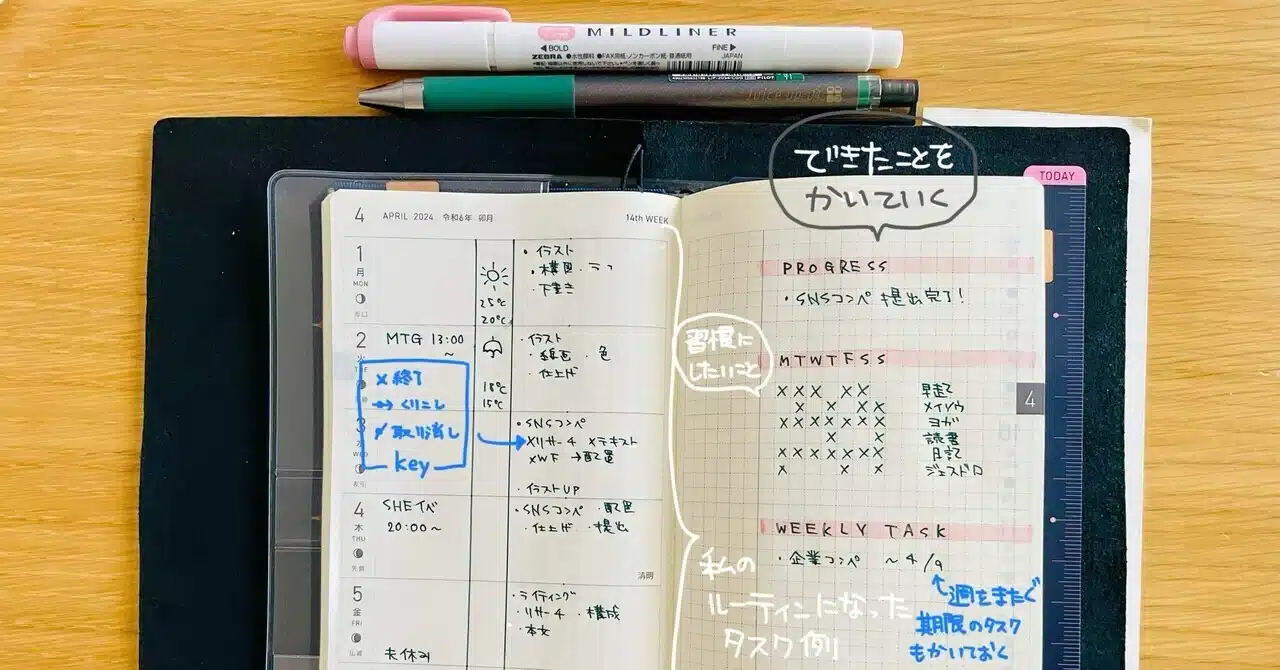 MILDLINER
◀BOLD
FINE▶
ZEBRA ●水性顔料 ●FAX用紙・ノンカーボン紙・普通紙用
JAPAN
PILOT
できたことを
かいていく
TODAY
4 APRIL 2024 令和6年 卯月
14th WEEK
1
月
MON
25℃
20℃
・イラスト
・下書き
2
火
TUE
MTG 13:00
～
18℃
15℃
・イラスト
・線画 ・色
・仕上げ
×終了
→くりこし
取り消し
key
3
WED
友引
・SNSコンペ
×リサーチ ×テキスト
×WF →配置
・イラストUP
4
木
THU
先負
SHEイベ
20:00～
・SNSコンペ ・配色
・仕上げ ・提出
清明
5
金
FRI
仏滅
夫休み
・ライティング
・リサーチ ・構成
・本文
PROGRESS
・SNSコンペ 提出完了!
習慣に
したいこと
MTWTFSS
××× ×× 早起き
× × ×× メイソウ
××××××× ヨガ
× × 読書
××××××× 日記
× × × ジェスドロ
4
WEEKLY TASK
・企業コンペ ～4/9
私の
ルーティンになった
タスク例
週をまたぐ
期限のタスク
もかいておく